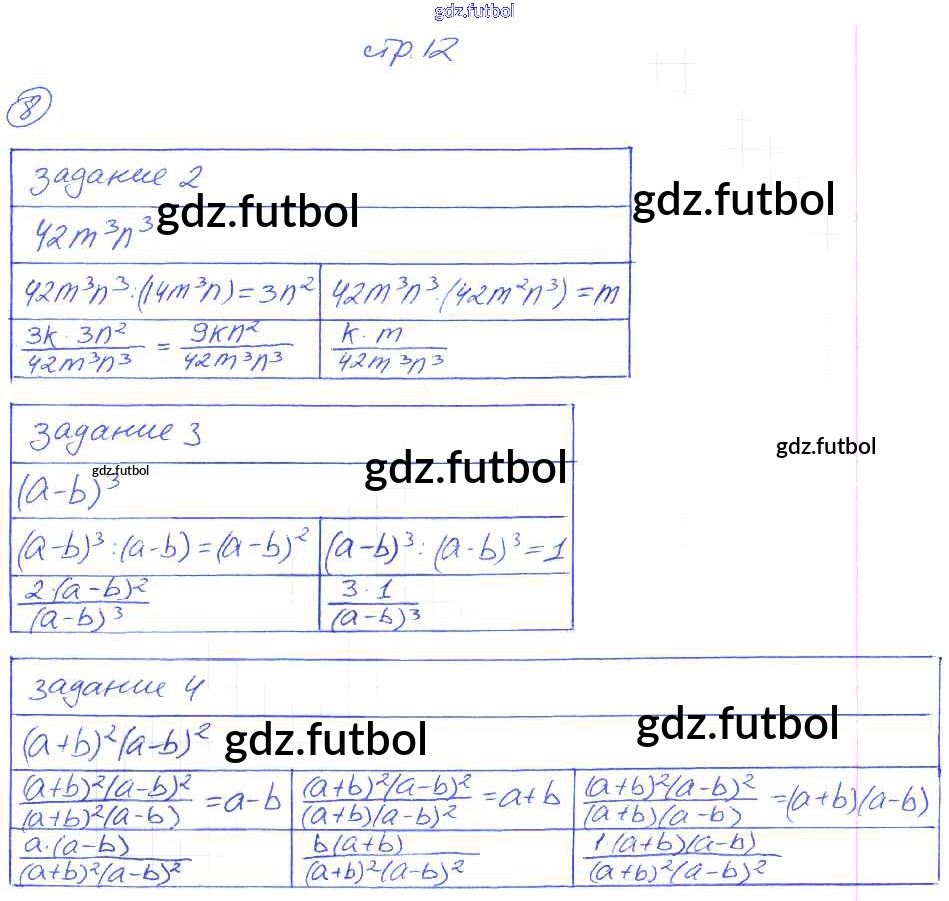 gdz.futbol
стр. 12
8
задание 2
gdz.futbol
gdz.futbol
42m³n³
42m³n³ : (14m³n) = 3n² | 42m³n³ : (42m²n³) = m
3k · 3n² / 42m³n³ = 9kn² / 42m³n³ | k · m / 42m³n³
задание 3
gdz.futbol
gdz.futbol
gdz.futbol
(a-b)³
(a-b)³ : (a-b) = (a-b)² | (a-b)³ : (a-b)³ = 1
2·(a-b)² / (a-b)³ | 3·1 / (a-b)³
задание 4
gdz.futbol
gdz.futbol
(a+b)²(a-b)²
(a+b)²(a-b)² / (a+b)²(a-b) = a-b | (a+b)²(a-b)² / (a+b)(a-b)² = a+b | (a+b)²(a-b)² / (a+b)(a-b) = (a+b)(a-b)
a·(a-b) / (a+b)²(a-b)² | b(a+b) / (a+b)²(a-b)² | 1·(a+b)(a-b) / (a+b)²(a-b)²